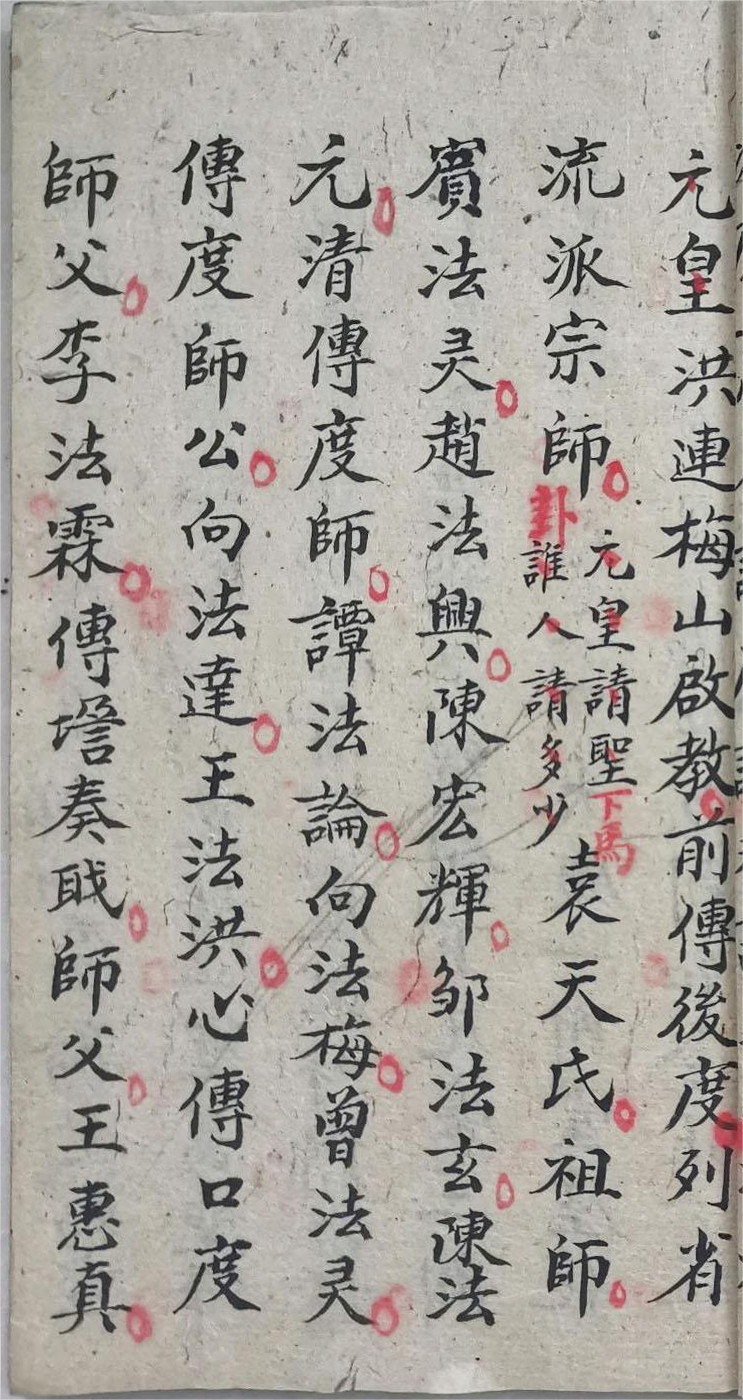 元皇洪連梅山啟教前傳後度列省
流派宗師卦元皇請聖下馬誰人請多少袁天氏祖師
賓法灵趙法興陳宏輝邹法玄陳法
元清傳度師譚法論向法梅曾法灵
傳度師公向法達王法洪心傳口度
師父李法霖傳壋奏戝師父王惠真